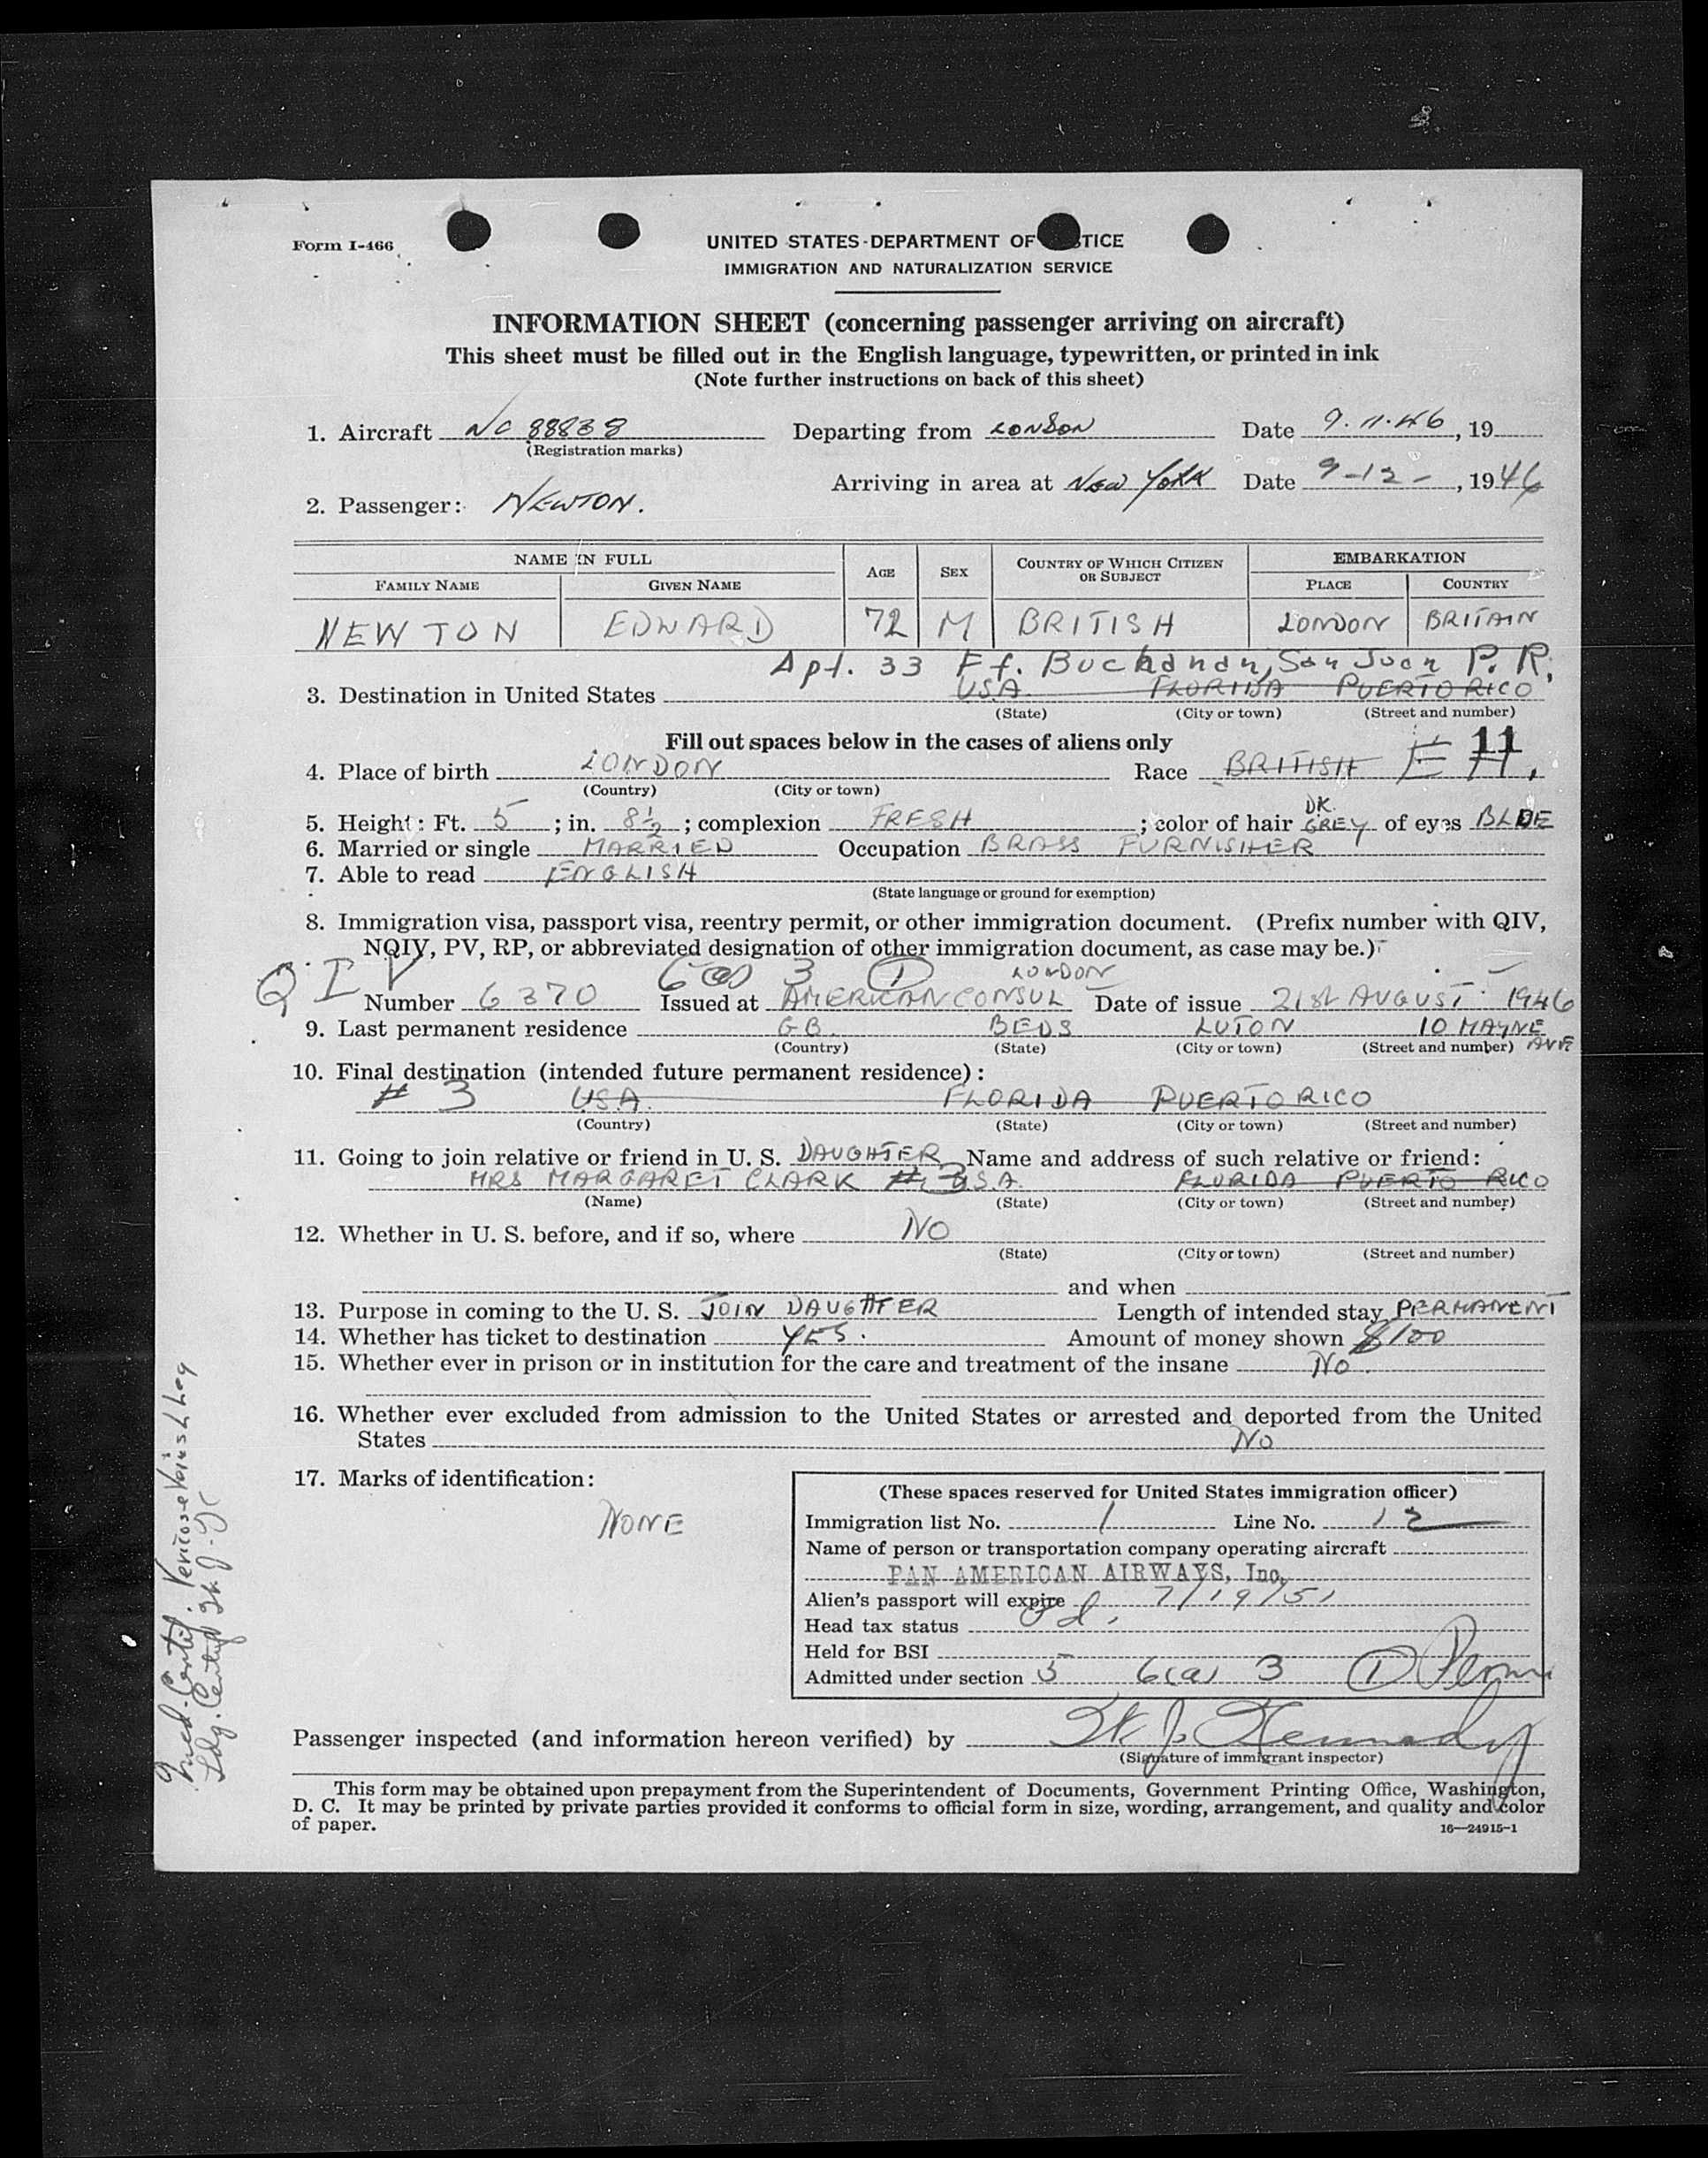 Form I-466
UNITED STATES DEPARTMENT OF TICE
IMMIGRATION AND NATURALIZATION SERVICE
INFORMATION SHEET (concerning passenger arriving on aircraft)
This sheet must be filled out in the English language, typewritten, or printed in ink
(Note further instructions on back of this sheet)
1. Aircraft NC 88838 Departing from LONDON Date 9.11.46, 19
(Registration marks)
Arriving in area at New York Date 9-12-, 1946
2. Passenger: NEWTON.
NAME IN FULL AGE SEX COUNTRY OF WHICH CITIZEN OR SUBJECT EMBARKATION
FAMILY NAME GIVEN NAME PLACE COUNTRY
NEWTON EDWARD 72 M BRITISH LONDON BRITAIN
Apt. 33 Ft. Buchanan, San Juan P.R.
3. Destination in United States USA FLORIDA PUERTO RICO
(State) (City or town) (Street and number)
Fill out spaces below in the cases of aliens only
4. Place of birth LONDON Race BRITISH E 11
(Country) (City or town)
5. Height: Ft. 5; in. 8½; complexion FRESH; color of hair DK. GREY of eyes BLUE
6. Married or single MARRIED Occupation BRASS FURNISHER
7. Able to read ENGLISH
(State language or ground for exemption)
8. Immigration visa, passport visa, reentry permit, or other immigration document. (Prefix number with QIV,
NQIV, PV, RP, or abbreviated designation of other immigration document, as case may be.)
QIV 6(a) 3 1 LONDON
Number 6370 Issued at AMERICAN CONSUL Date of issue 21st AUGUST 1946
9. Last permanent residence G.B. BEDS LUTON 10 MAYNE AVE
(Country) (State) (City or town) (Street and number)
10. Final destination (intended future permanent residence):
# 3 USA FLORIDA PUERTO RICO
(Country) (State) (City or town) (Street and number)
11. Going to join relative or friend in U. S. DAUGHTER Name and address of such relative or friend:
MRS MARGARET CLARK # 3 U.S.A. FLORIDA PUERTO RICO
(Name) (State) (City or town) (Street and number)
12. Whether in U. S. before, and if so, where NO
(State) (City or town) (Street and number)
and when
13. Purpose in coming to the U. S. JOIN DAUGHTER Length of intended stay PERMANENT
14. Whether has ticket to destination YES. Amount of money shown $100
15. Whether ever in prison or in institution for the care and treatment of the insane NO
16. Whether ever excluded from admission to the United States or arrested and deported from the United
States NO
17. Marks of identification:
NONE
(These spaces reserved for United States immigration officer)
Immigration list No. 1 Line No. 12
Name of person or transportation company operating aircraft
PAN AMERICAN AIRWAYS, Inc.
Alien's passport will expire 7/19/51
Head tax status Pd.
Held for BSI
Admitted under section 5 6(a) 3 1 Perm
Passenger inspected (and information hereon verified) by W. J. Kennedy
(Signature of immigrant inspector)
This form may be obtained upon prepayment from the Superintendent of Documents, Government Printing Office, Washington,
D. C. It may be printed by private parties provided it conforms to official form in size, wording, arrangement, and quality and color
of paper.
16—24915-1
Med. Certif. Varicose Veins L Leg
Ldg. Certif